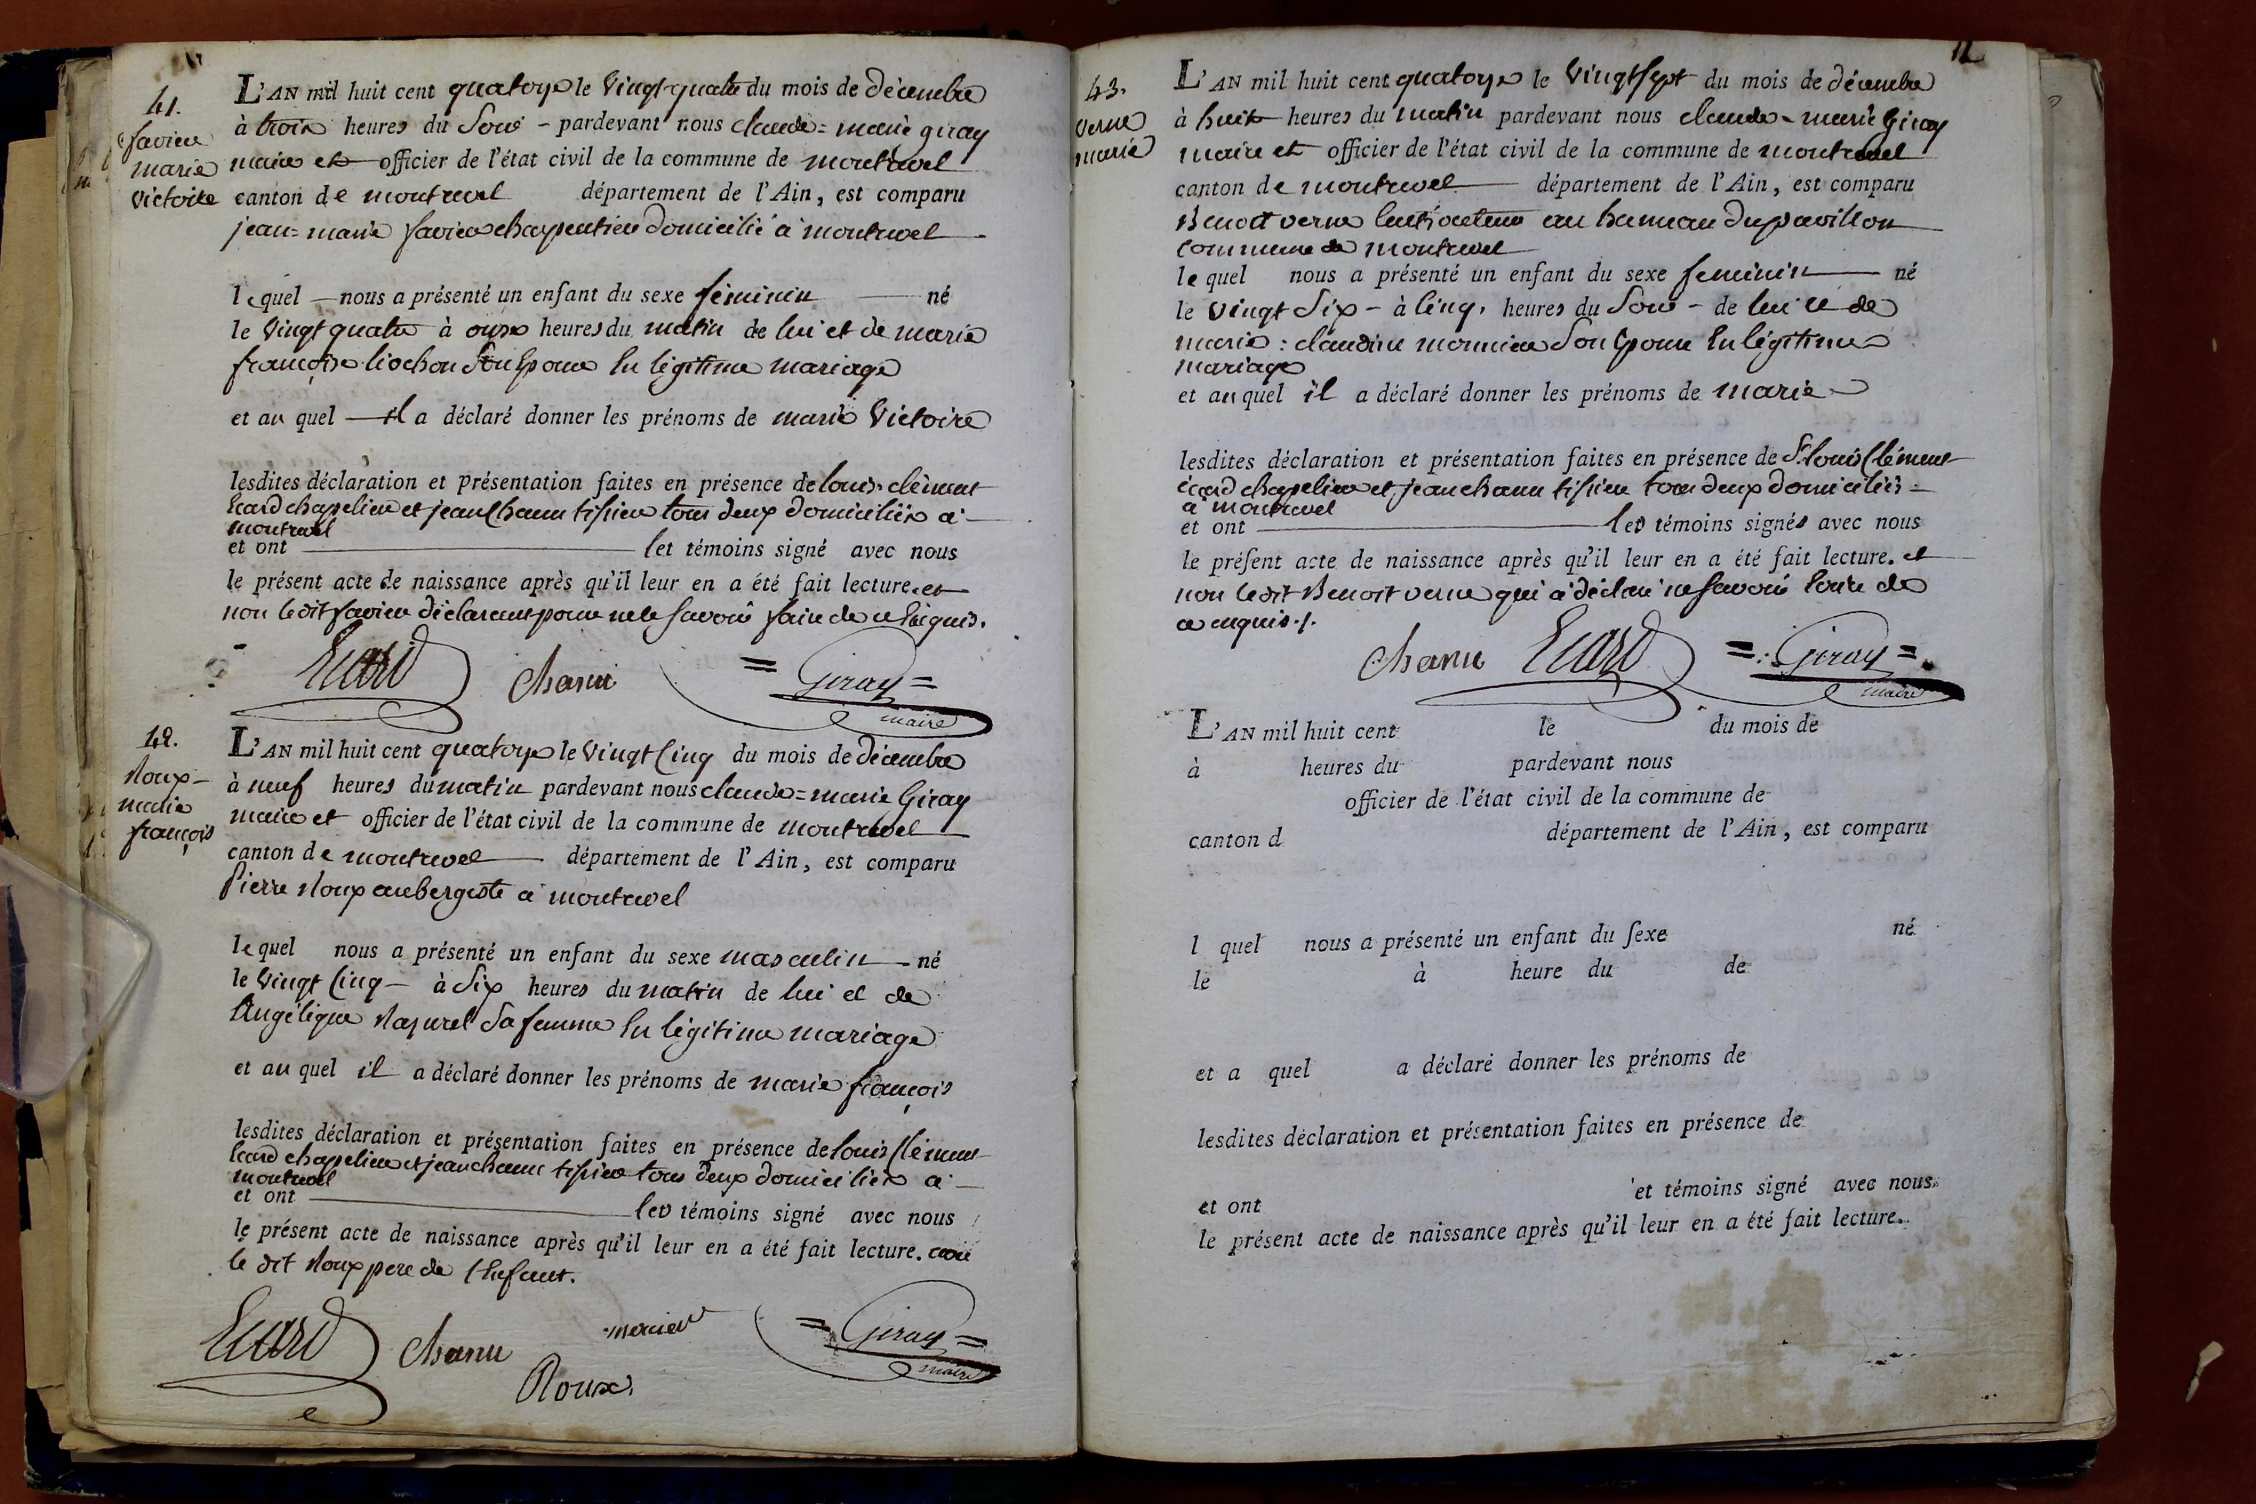 41.
favier
marie
victoire
L'AN mil huit cent quatorze le vingt quatre du mois de décembre
à trois heures du soir - pardevant nous claude = marie giray
maire et officier de l'état civil de la commune de montrevel
canton de montrevel département de l'Ain, est comparu
jean = marie favier charpentier domicilié à montrevel
lequel nous a présenté un enfant du sexe féminin né
le vingt quatre à onze heures du matin de lui et de marie
françoise liochon son Epouse En légitime mariage
et au quel il a déclaré donner les prénoms de marie victoire
lesdites déclaration et présentation faites en présence de louis clément
Ecard chapelier et jean Chanu tissier tous deux domiciliés à
montrevel
et ont les témoins signé avec nous
le présent acte de naissance après qu'il leur en a été fait lecture. et
non le dit favier déclarant pour ne le savoir faire de ce Enquis.
Ecard Chanu = Giray =
maire
42.
Roux -
marie
françois
L'AN mil huit cent quatorze le vingt Cinq du mois de décembre
à neuf heures du matin pardevant nous claude = marie Giray
maire et officier de l'état civil de la commune de montrevel
canton de montrevel département de l'Ain, est comparu
Pierre Roux aubergiste à montrevel
lequel nous a présenté un enfant du sexe masculin né
le vingt Cinq - à Six heures du matin de lui et de
Angélique Razurel Sa femme En légitime mariage
et au quel il a déclaré donner les prénoms de marie françois
lesdites déclaration et présentation faites en présence de louis Clément
Ecard chapelier et jean chanu tissier tous deux domiciliés à
montrevel
et ont les témoins signé avec nous
le présent acte de naissance après qu'il leur en a été fait lecture.
le dit Roux pere de l'Enfant.
Ecard Chanu mercier = Giray =
maire
Roux
43.
verne
marie
L'AN mil huit cent quatorze le vingt sept du mois de décembre
à huit heures du matin pardevant nous claude - marie Giray
maire et officier de l'état civil de la commune de montrevel
canton de montrevel département de l'Ain, est comparu
Benoit verne Cultivateur au hameau du pavillon
commune de montrevel
lequel nous a présenté un enfant du sexe feminin né
le vingt Six - à Cinq heures du Soir - de lui et de
marie : claudine monnier Son Epouse En légitime
mariage
et au quel il a déclaré donner les prénoms de marie
lesdites déclaration et présentation faites en présence de Sr. louis Clément
Ecard chapelier et jean chanu tissier tous deux domiciliés =
à montrevel
et ont les témoins signés avec nous
le présent acte de naissance après qu'il leur en a été fait lecture. et
non le dit Benoit verne qui a déclaré ne savoir Ecrire de
ce enquis ./.
Chanu Ecard = Giray =
maire
L'AN mil huit cent le du mois de
à heures du pardevant nous
officier de l'état civil de la commune de
canton d département de l'Ain, est comparu
l quel nous a présenté un enfant du sexe né
le à heure du de
et a quel a déclaré donner les prénoms de
lesdites déclaration et présentation faites en présence de
et ont et témoins signé avec nous
le présent acte de naissance après qu'il leur en a été fait lecture.